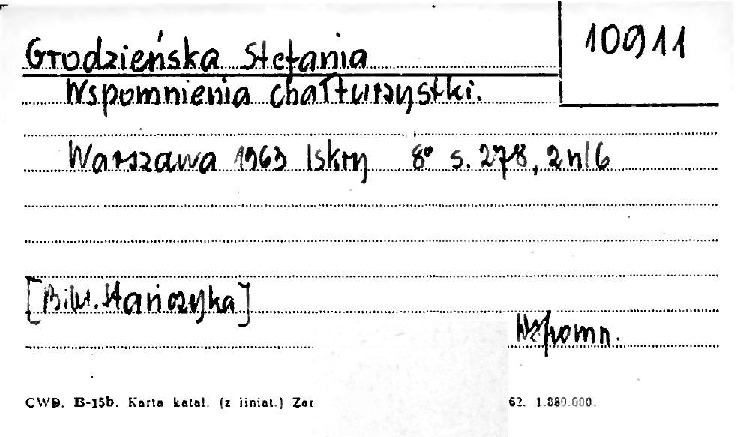 10911
Grodzieńska Stefania
Wspomnienia chałturzystki.
Warszawa 1963 Iskry 8° s. 278, 2nlb
[Bibl. Stańczyka]
Wspomn.
CWD. B-15b. Karta katal. (z liniat.) Zar 62. 1.880.000.